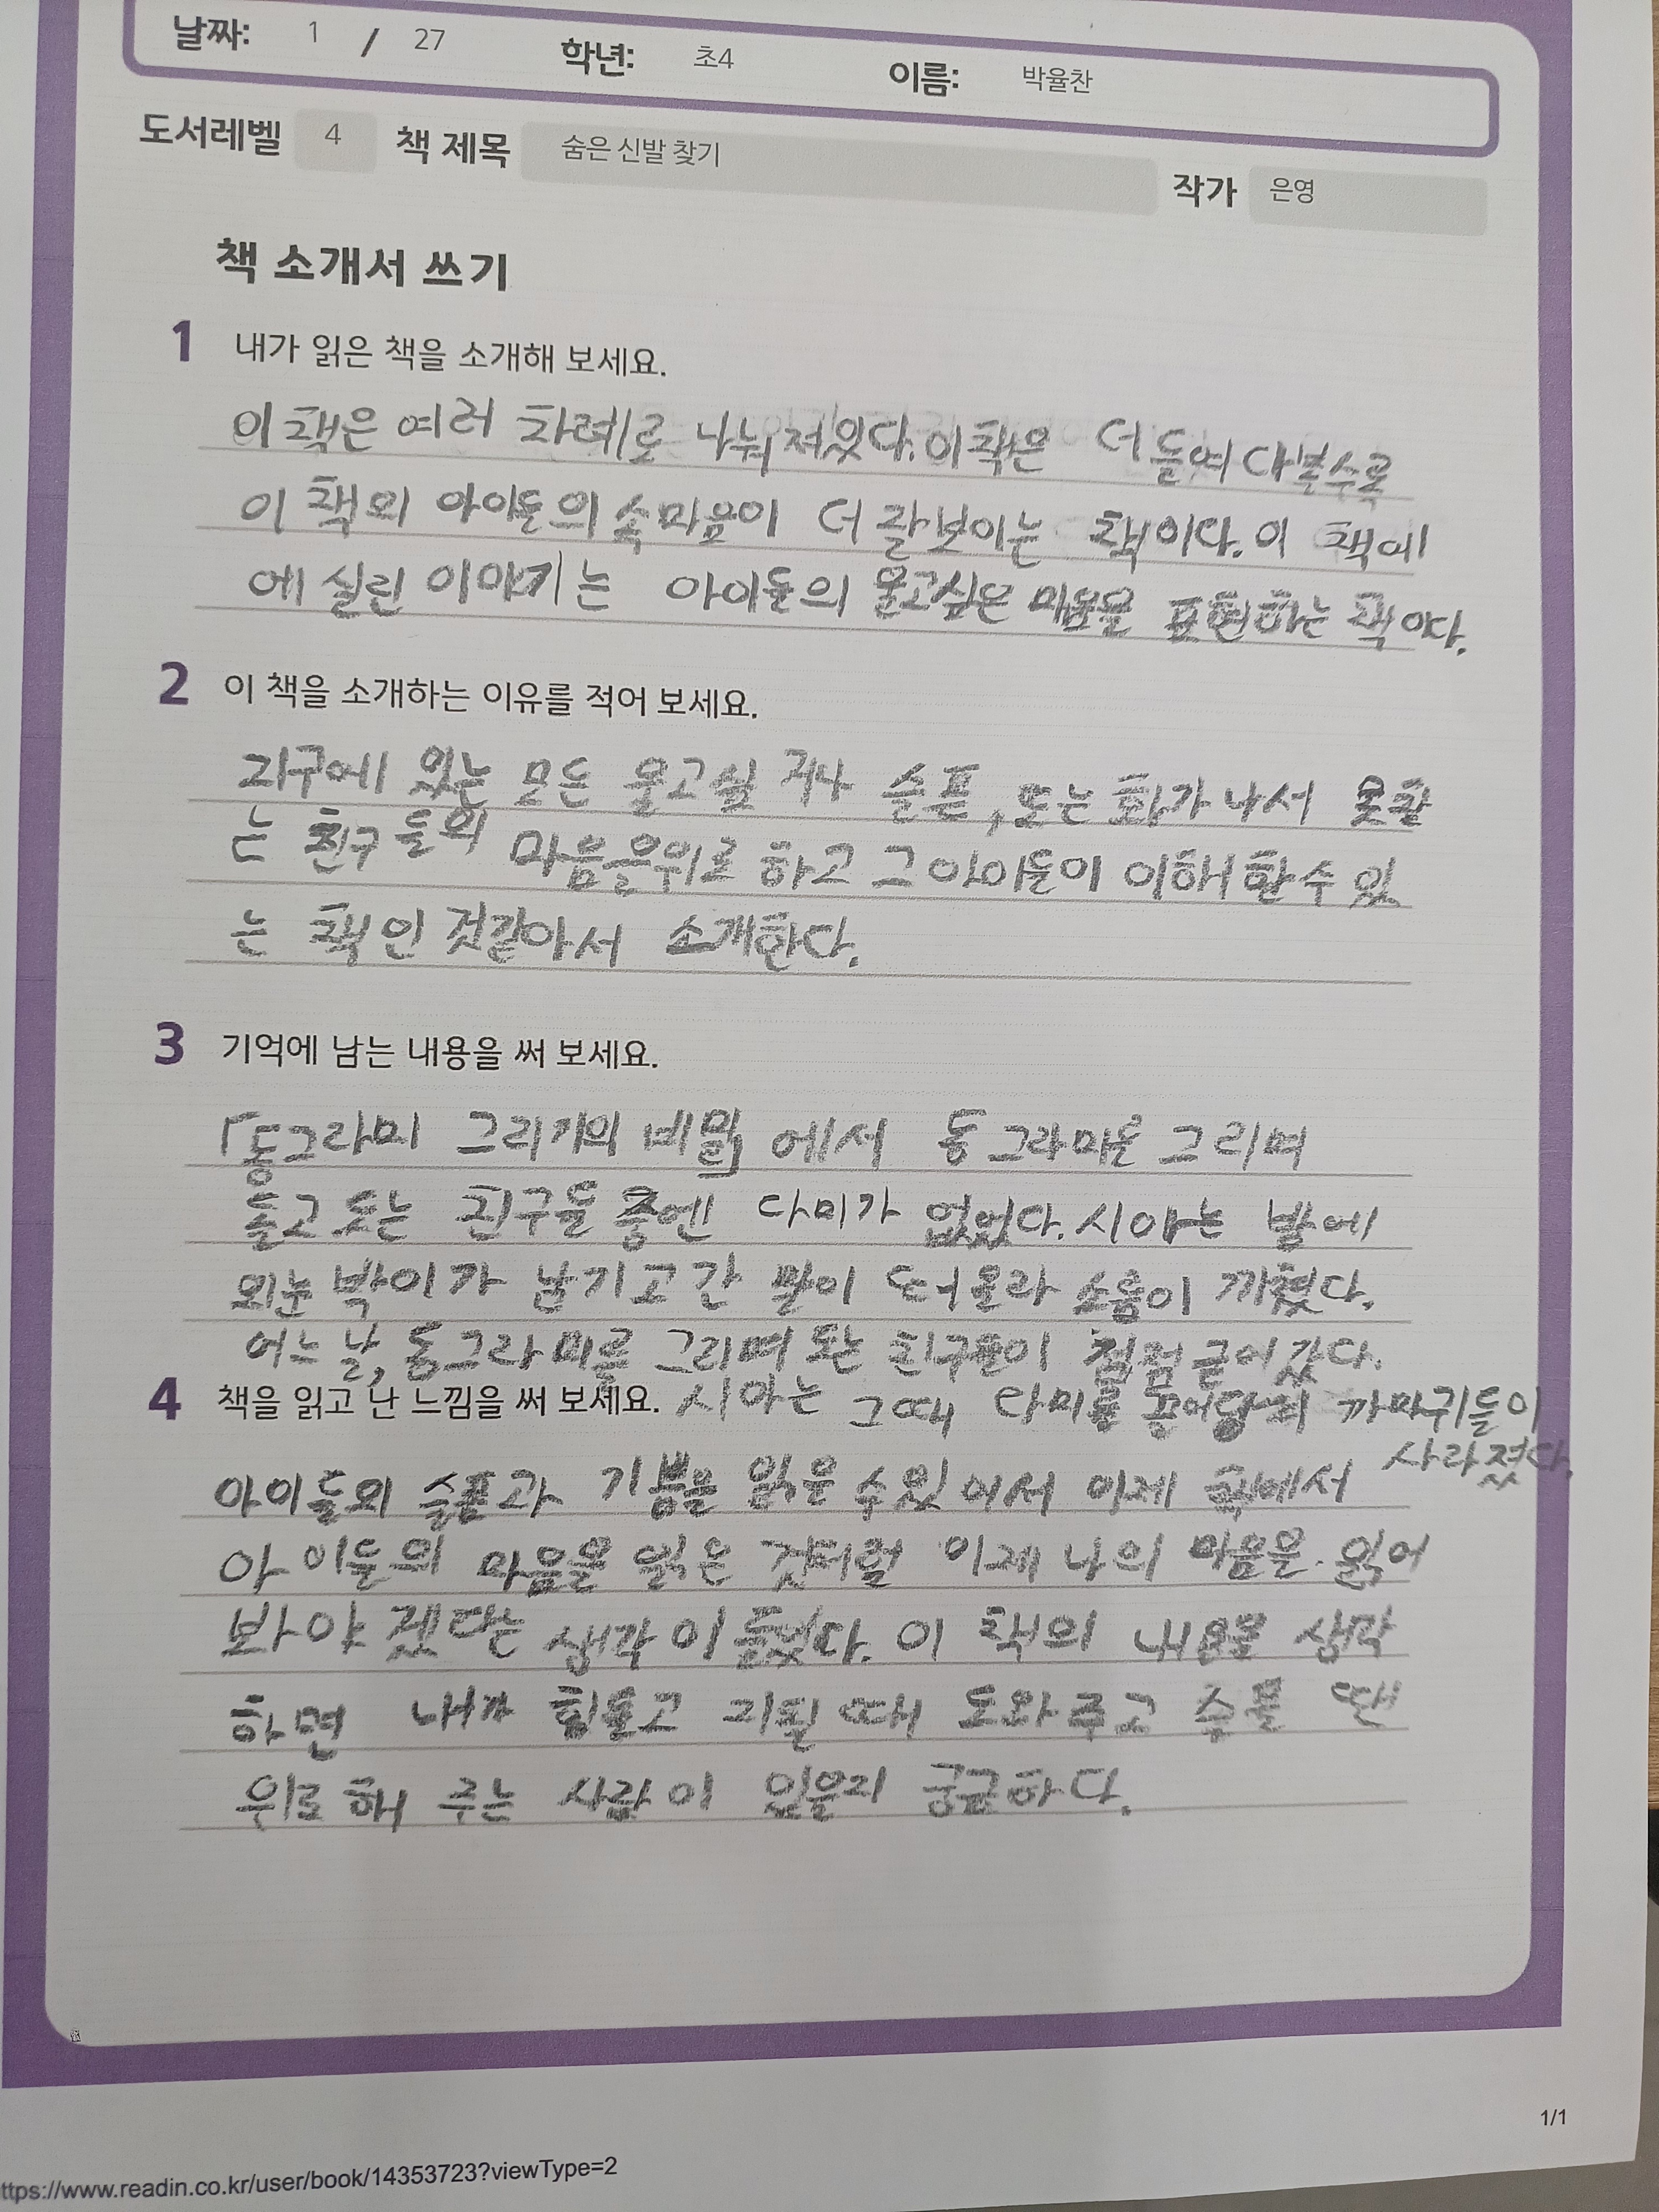 날짜: 1 / 27 학년: 초4 이름: 박율찬
도서레벨 4 책 제목 숨은 신발 찾기 작가 은영
책 소개서 쓰기
1 내가 읽은 책을 소개해 보세요.
이 책은 여러 차례로 나눠져있다. 이 책은 더 들여다볼수록
이 책의 아이들의 속마음이 더 잘보이는 책이다. 이 책에
에 실린 이야기는 아이들의 울고싶은 마음을 표현하는 책이다.
2 이 책을 소개하는 이유를 적어 보세요.
지구에 있는 모든 울고싶거나 슬픈, 또는 화가 나서 못참
는 친구들의 마음을 위로하고 그 아이들이 이해할 수 있
는 책인 것같아서 소개한다.
3 기억에 남는 내용을 써 보세요.
「동그라미 그리기의 비밀」에서 동그라미를 그리며
돌고 도는 친구들 중엔 다미가 없었다. 시아는 밭에
외눈박이가 남기고 간 말이 떠올라 소름이 끼쳤다.
어느 날, 동그라미를 그리며 도는 친구들이 점점 굳어갔다.
4 책을 읽고 난 느낌을 써 보세요. 시아는 그때 다미를 끌어당기 까마귀들이
사라졌다.
아이들의 슬픔과 기쁨을 읽을 수 있어서 이제 책에서
아이들의 마음을 읽은 것처럼 이제 나의 마음을 읽어
봐야겠다는 생각이 들었다. 이 책의 내용을 생각
하면 내가 힘들고 지칠 때 도와주고 슬플 땐
위로해 주는 사람이 있을지 궁금하다.
1/1
ttps://www.readin.co.kr/user/book/14353723?viewType=2